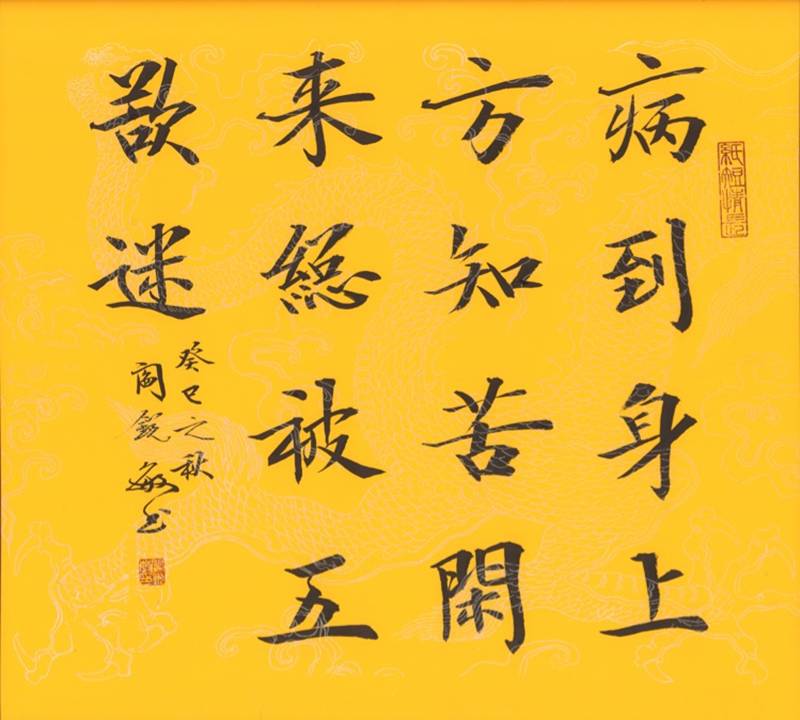 紙短情長
病到身上
方知苦閑
来總被五
欲迷
癸巳之秋
閻銳敏书